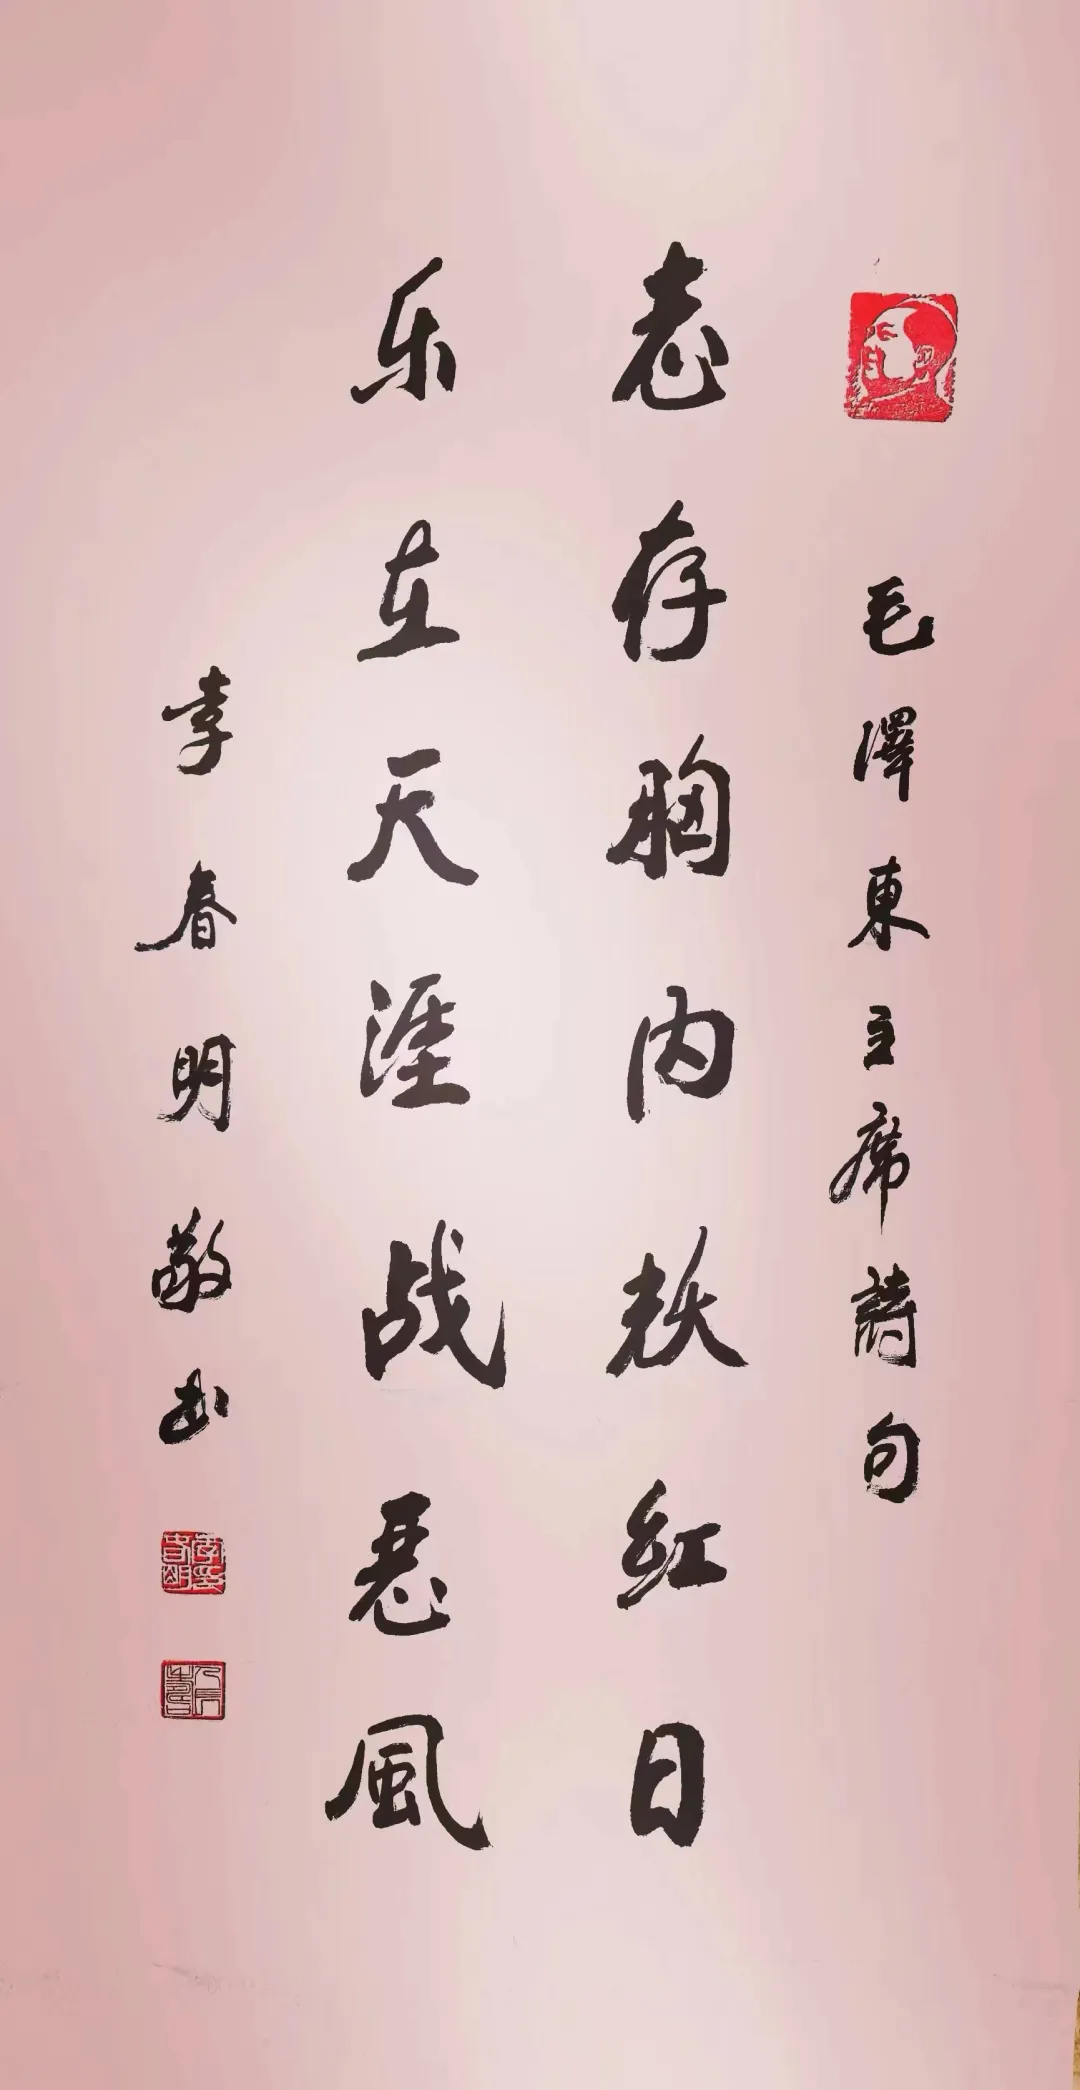 毛澤東主席詩句
志存胸内跃红日
乐在天涯战恶風
李春明敬书